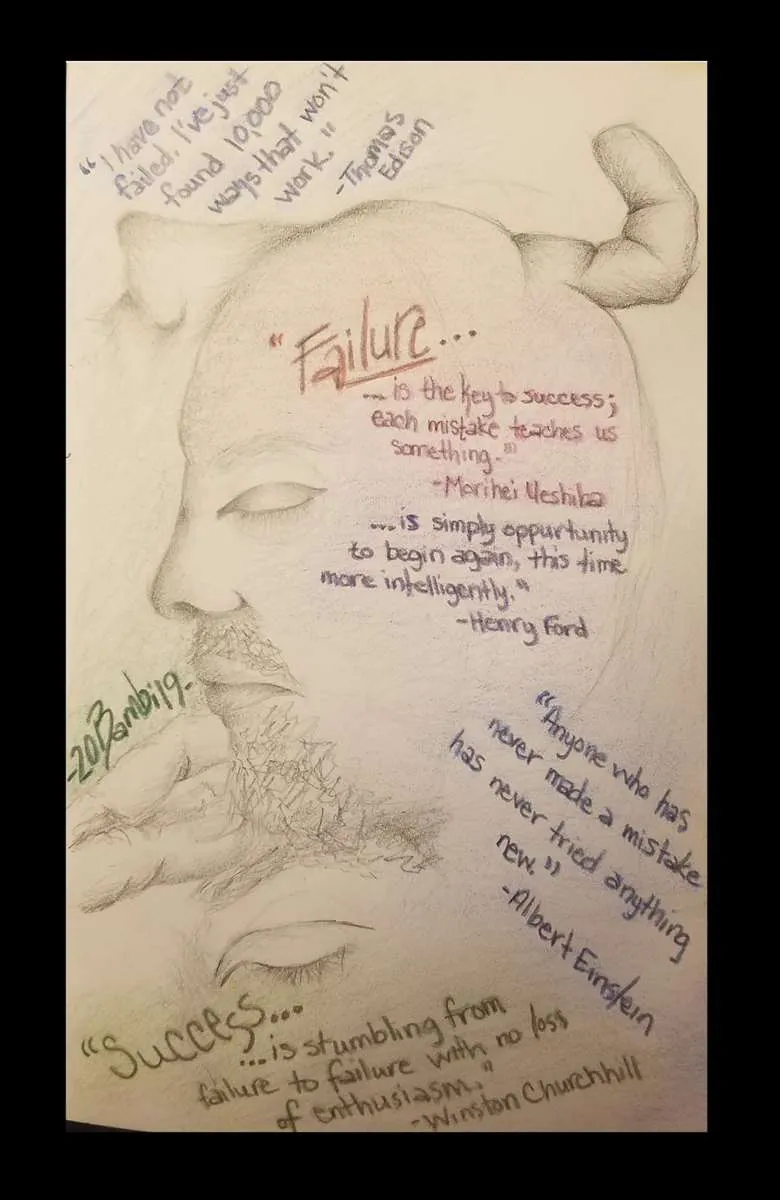 "I have not
failed. I've just
found 10,000
ways that won't
work."
-Thomas
Edison
"Failure...
... is the key to success;
each mistake teaches us
something."
-Morihei Ueshiba
...is simply oppurtunity
to begin again, this time
more intelligently."
-Henry Ford
-20Bambi19-
"Anyone who has
never made a mistake
has never tried anything
new."
-Albert Einstein
"Success...
...is stumbling from
failure to failure with no loss
of enthusiasm."
-Winston Churchhill